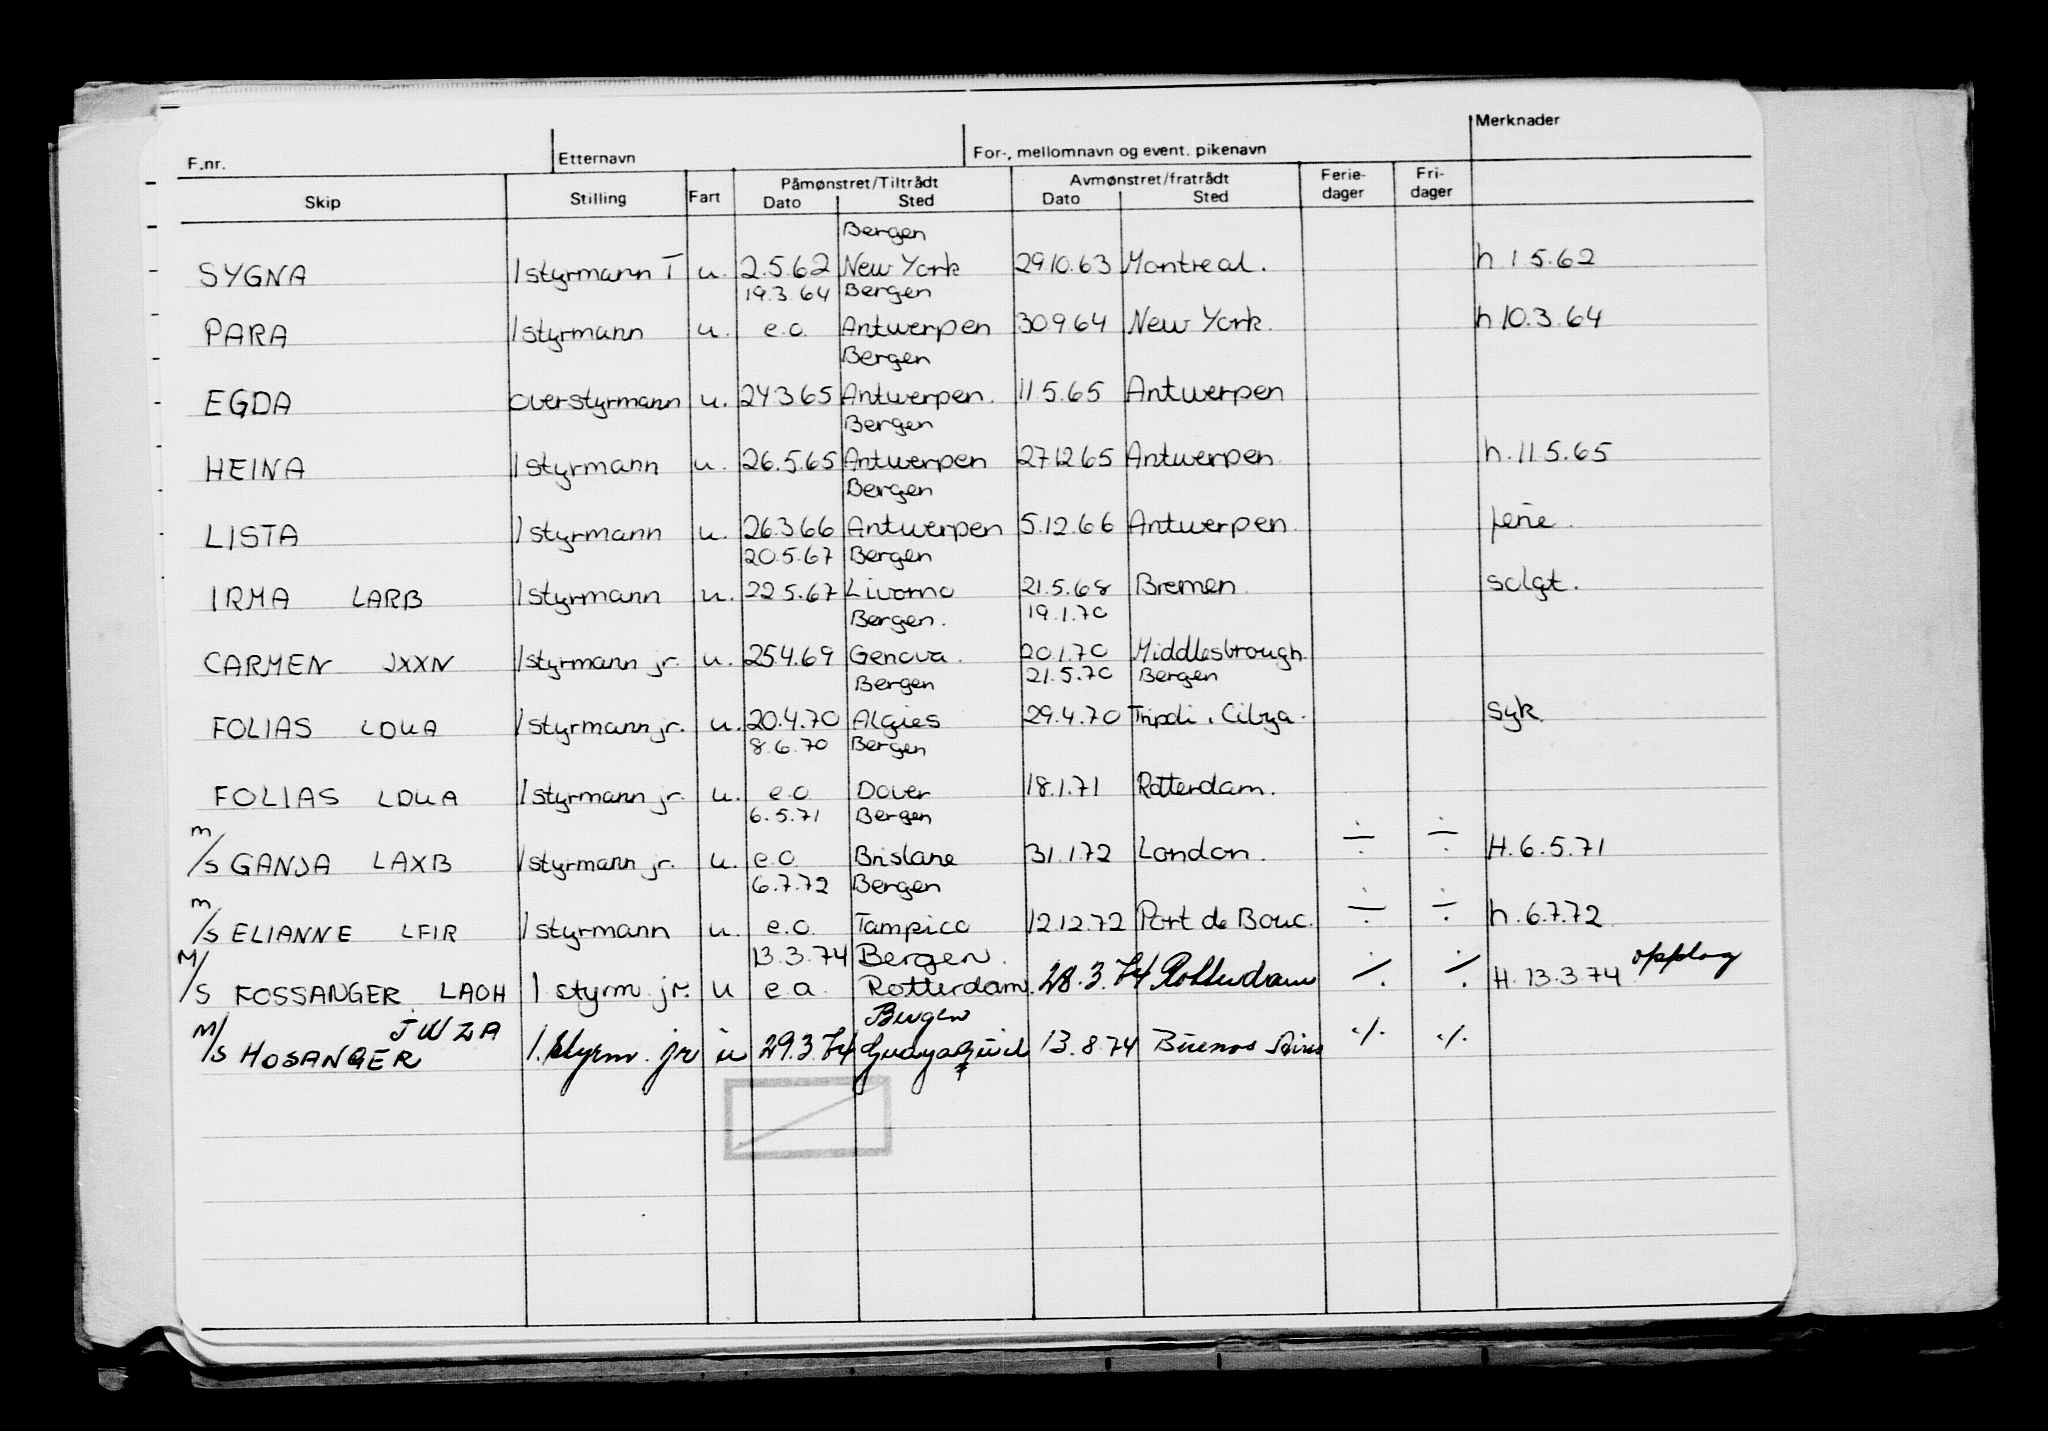 Merknader
F.nr. Etternavn For-, mellomnavn og event. pikenavn
Påmønstret/Tiltrådt Avmønstret/fratrådt Ferie- Fri-
Skip Stilling Fart Dato Sted Dato Sted dager dager
Bergen
SYGNA 1 styrmann I u. 2.5.62 New York 29.10.63 Montreal. h 1.5.62
19.3.64 Bergen
PARA 1 styrmann u. e.o. Antwerpen 30.9.64 New York. h 10.3.64
Bergen
EGDA overstyrmann u. 24.3.65 Antwerpen. 11.5.65 Antwerpen
Bergen
HEINA 1 styrmann u. 26.5.65 Antwerpen 27.12.65 Antwerpen. h. 11.5.65
Bergen
LISTA 1 styrmann u. 26.3.66 Antwerpen 5.12.66 Antwerpen. ferie.
20.5.67 Bergen
IRMA LARB 1 styrmann u. 22.5.67 Livorno 21.5.68 Bremen. solgt.
Bergen. 19.1.70
CARMEN JXXN 1 styrmann jr. u. 25.4.69 Genova. 20.1.70 Middlesbrough.
Bergen 21.5.70 Bergen
FOLIAS LDUA 1 styrmann jr. u. 20.4.70 Algies 29.4.70 Tripoli. Libya. syk.
8.6.70 Bergen
FOLIAS LDUA 1 styrmann jr. u. e.o Dover 18.1.71 Rotterdam.
6.5.71 Bergen
m/s GANJA LAXB 1 styrmann jr. u. e.o. Brisbane 31.1.72 London. ÷ ÷ H. 6.5.71
6.7.72 Bergen
m/s ELIANNE LFIR 1 styrmann u. e.o. Tampico 12.12.72 Port de Bouc. ÷ ÷ h. 6.7.72
13.3.74 Bergen.
M/S FOSSANGER LAOH 1 styrm. jr. u e.o. Rotterdam. 28.3.74 Rotterdam ⁒ ⁒ H. 13.3.74 opplag
JWZA Bergen
M/S HOSANGER 1. styrm. jr u 29.3.74 Guayaquil 13.8.74 Buenos Aires ⁒ ⁒